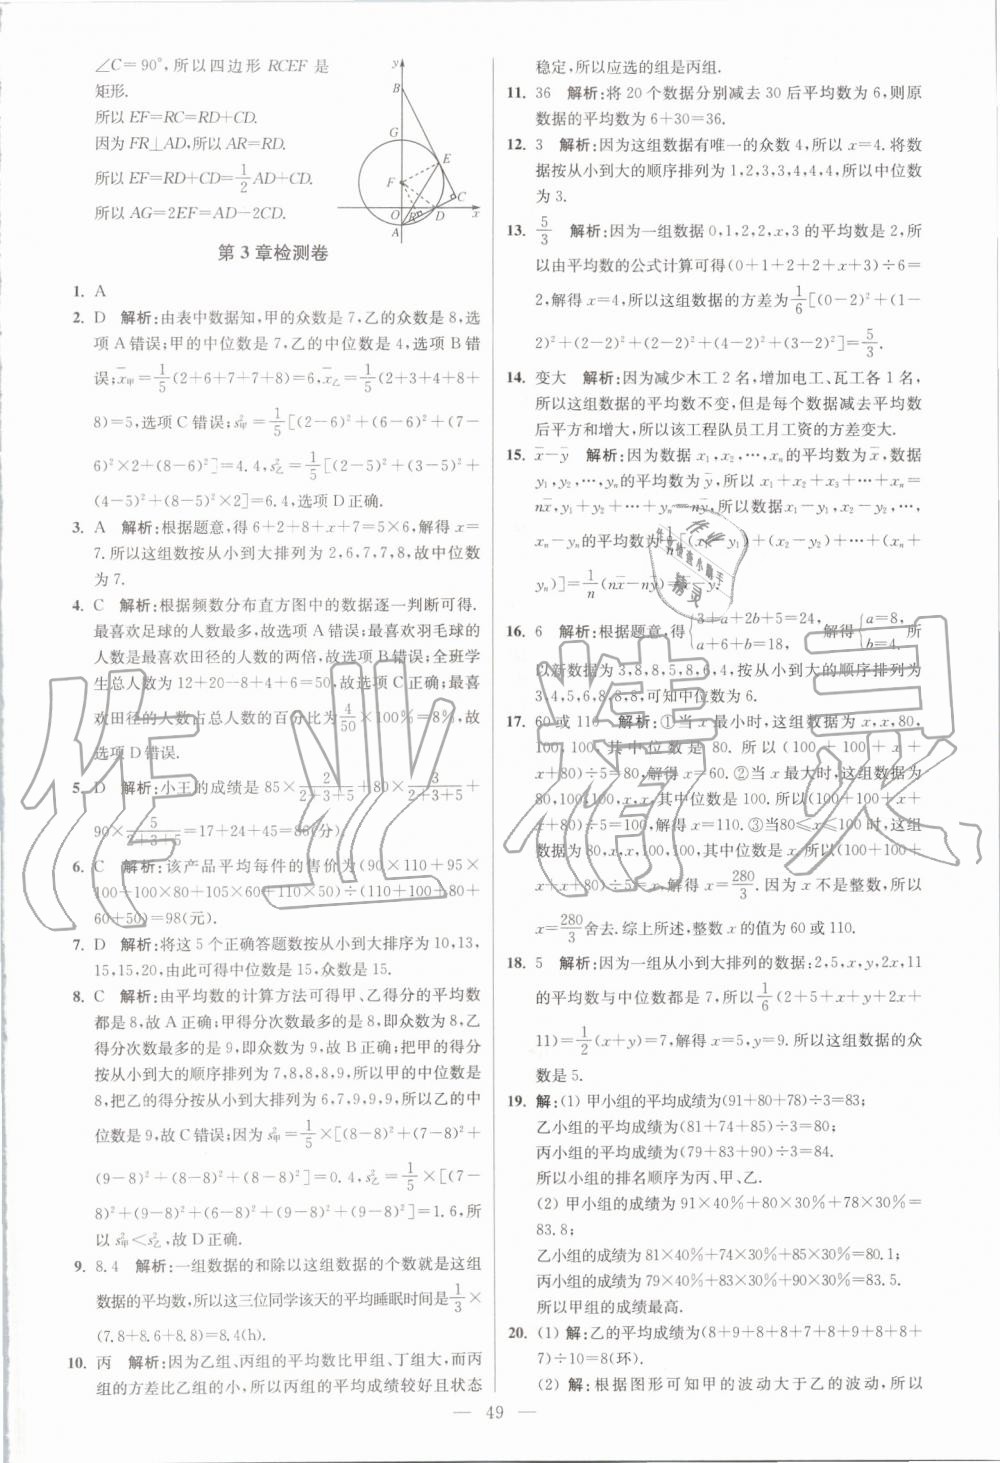 ∠C=90°,所以四边形 RCEF 是
矩形.
所以 EF=RC=RD+CD.
因为 FR⊥AD,所以 AR=RD.
所以 EF=RD+CD=1/2AD+CD.
所以 AG=2EF=AD-2CD.
y
B
G
E
F
C
O
R
D
x
A
第3章检测卷
1. A
2. D 解析:由表中数据知,甲的众数是7,乙的众数是8,选
项A错误;甲的中位数是7,乙的中位数是4,选项B错
误;x̄甲=1/5(2+6+7+7+8)=6,x̄乙=1/5(2+3+4+8+
8)=5,选项C错误;s²甲=1/5[(2-6)²+(6-6)²+(7-
6)²×2+(8-6)²]=4.4,s²乙=1/5[(2-5)²+(3-5)²+
(4-5)²+(8-5)²×2]=6.4,选项D正确.
3. A 解析:根据题意,得6+2+8+x+7=5×6,解得x=
7.所以这组数按从小到大排列为2,6,7,7,8,故中位数
为7.
4. C 解析:根据频数分布直方图中的数据逐一判断可得.
最喜欢足球的人数最多,故选项A错误;最喜欢羽毛球的
人数是最喜欢田径的人数的两倍,故选项B错误;全班学
生总人数为12+20+8+4+6=50,故选项C正确;最喜
欢田径的人数占总人数的百分比为4/50×100%=8%,故
选项D错误.
5. D 解析:小王的成绩是85×2/(2+3+5)+80×3/(2+3+5)+
90×5/(2+3+5)=17+24+45=86(分).
6. C 解析:该产品平均每件的售价为(90×110+95×
100+100×80+105×60+110×50)÷(110+100+80+
60+50)=98(元).
7. D 解析:将这5个正确答题数按从小到大排序为10,13,
15,15,20,由此可得中位数是15,众数是15.
8. C 解析:由平均数的计算方法可得甲、乙得分的平均数
都是8,故A正确;甲得分次数最多的是8,即众数为8,乙
得分次数最多的是9,即众数为9,故B正确;把甲的得分
按从小到大的顺序排列为7,8,8,8,9,所以甲的中位数是
8,把乙的得分按从小到大的顺序排列为6,7,9,9,9,所以乙的中
位数是9,故C错误;因为s²甲=1/5×[(8-8)²+(7-8)²+
(9-8)²+(8-8)²+(8-8)²]=0.4,s²乙=1/5×[(7-
8)²+(9-8)²+(6-8)²+(9-8)²+(9-8)²]=1.6,所
以s²甲<s²乙,故D正确.
9. 8.4 解析:一组数据的和除以这组数据的个数就是这组
数据的平均数,所以这三位同学该天的平均睡眠时间是1/3×
(7.8+8.6+8.8)=8.4(h).
10. 丙 解析:因为乙组、丙组的平均数比甲组、丁组大,而丙
组的方差比乙组的小,所以丙组的平均成绩较好且状态
稳定,所以应选的组是丙组.
11. 36 解析:将20个数据分别减去30后平均数为6,则原
数据的平均数为6+30=36.
12. 3 解析:因为这组数据有唯一的众数4,所以x=4.将数
据按从小到大的顺序排列为1,2,3,3,4,4,4,所以中位数
为3.
13. 5/3 解析:因为一组数据0,1,2,2,x,3的平均数是2,所
以由平均数的公式计算可得(0+1+2+2+x+3)÷6=
2,解得x=4,所以这组数据的方差为1/6[(0-2)²+(1-
2)²+(2-2)²+(2-2)²+(4-2)²+(3-2)²]=5/3.
14. 变大 解析:因为减少木工2名,增加电工、瓦工各1名,
所以这组数据的平均数不变,但是每个数据减去平均数
后平方和增大,所以该工程队员工月工资的方差变大.
15. x̄-ȳ 解析:因为数据x₁,x₂,…,xₙ的平均数为x̄,数据
y₁,y₂,…,yₙ的平均数为ȳ,所以x₁+x₂+x₃+…+xₙ=
nx̄,y₁+y₂+…+yₙ=nȳ,所以数据x₁-y₁,x₂-y₂,…,
xₙ-yₙ的平均数为1/n[(x₁-y₁)+(x₂-y₂)+…+(xₙ-
yₙ)]=1/n(nx̄-nȳ)=x̄-ȳ.
16. 6 解析:根据题意,得{3+a+2b+5=24, a+6+b=18, 解得{a=8, b=4. 所
以新数据为3,8,8,5,8,6,4,按从小到大的顺序排列为
3,4,5,6,8,8,8,可知中位数为6.
17. 60或110 解析:①当x最小时,这组数据为x,x,80,
100,100,其中位数是80.所以(100+100+x+
x+80)÷5=80,解得x=60.②当x最大时,这组数据为
80,100,100,x,x,其中位数是100.所以(100+100+x+
x+80)÷5=100,解得x=110.③当80≤x≤100时,这组
数据为80,x,x,100,100,其中位数是x,所以(100+100+
x+x+80)÷5=x,解得x=280/3.因为x不是整数,所以
x=280/3舍去.综上所述,整数x的值为60或110.
18. 5 解析:因为一组从小到大排列的数据:2,5,x,y,2x,11
的平均数与中位数都是7,所以1/6(2+5+x+y+2x+
11)=1/2(x+y)=7,解得x=5,y=9.所以这组数据的众
数是5.
19. 解:(1) 甲小组的平均成绩为(91+80+78)÷3=83;
乙小组的平均成绩为(81+74+85)÷3=80;
丙小组的平均成绩为(79+83+90)÷3=84.
所以小组的排名顺序为丙、甲、乙.
(2) 甲小组的成绩为91×40%+80×30%+78×30%=
83.8;
乙小组的成绩为81×40%+74×30%+85×30%=80.1;
丙小组的成绩为79×40%+83×30%+90×30%=83.5.
所以甲组的成绩最高.
20. (1) 解:乙的平均成绩为(8+9+8+8+7+8+9+8+8+
7)÷10=8(环).
(2) 解:根据图形可知甲的波动大于乙的波动,所以
— 49 —
作业精灵
作业
检查小助手
精灵